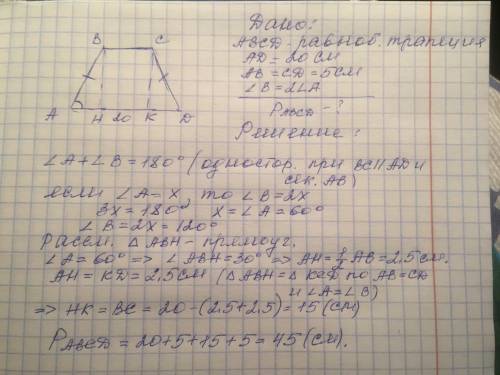 Дано:
ABCD - равноб. трапеция
AD = 20 см
AB = CD = 5 см
∠B = 2∠A
P ABCD - ?
Решение:
B C
A H 20 K D
∠A + ∠B = 180° (одностор. при BC || AD и
сек. AB)
если ∠A - x, то ∠B = 2x
3x = 180° x = ∠A = 60°
∠B = 2x = 120°
Рассм. △ABH - прямоуг.
∠A = 60° => ∠ABH = 30° => AH = ½ AB = 2,5 см.
AH = KD = 2,5 см (△ABH = △KCD по AB = CD
и ∠A = ∠B)
=> HK = BC = 20 - (2,5 + 2,5) = 15 (см)
P ABCD = 20 + 5 + 15 + 5 = 45 (см).